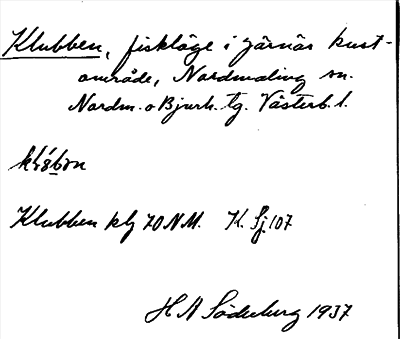 Klubben, fiskläge i Järnäs kust-
område, Nordmaling sn.
Nordm. o Bjurh. tg. Västerb. l.
Klubben klg 70 N.M. K. Sj 107
H A Söderberg 1937